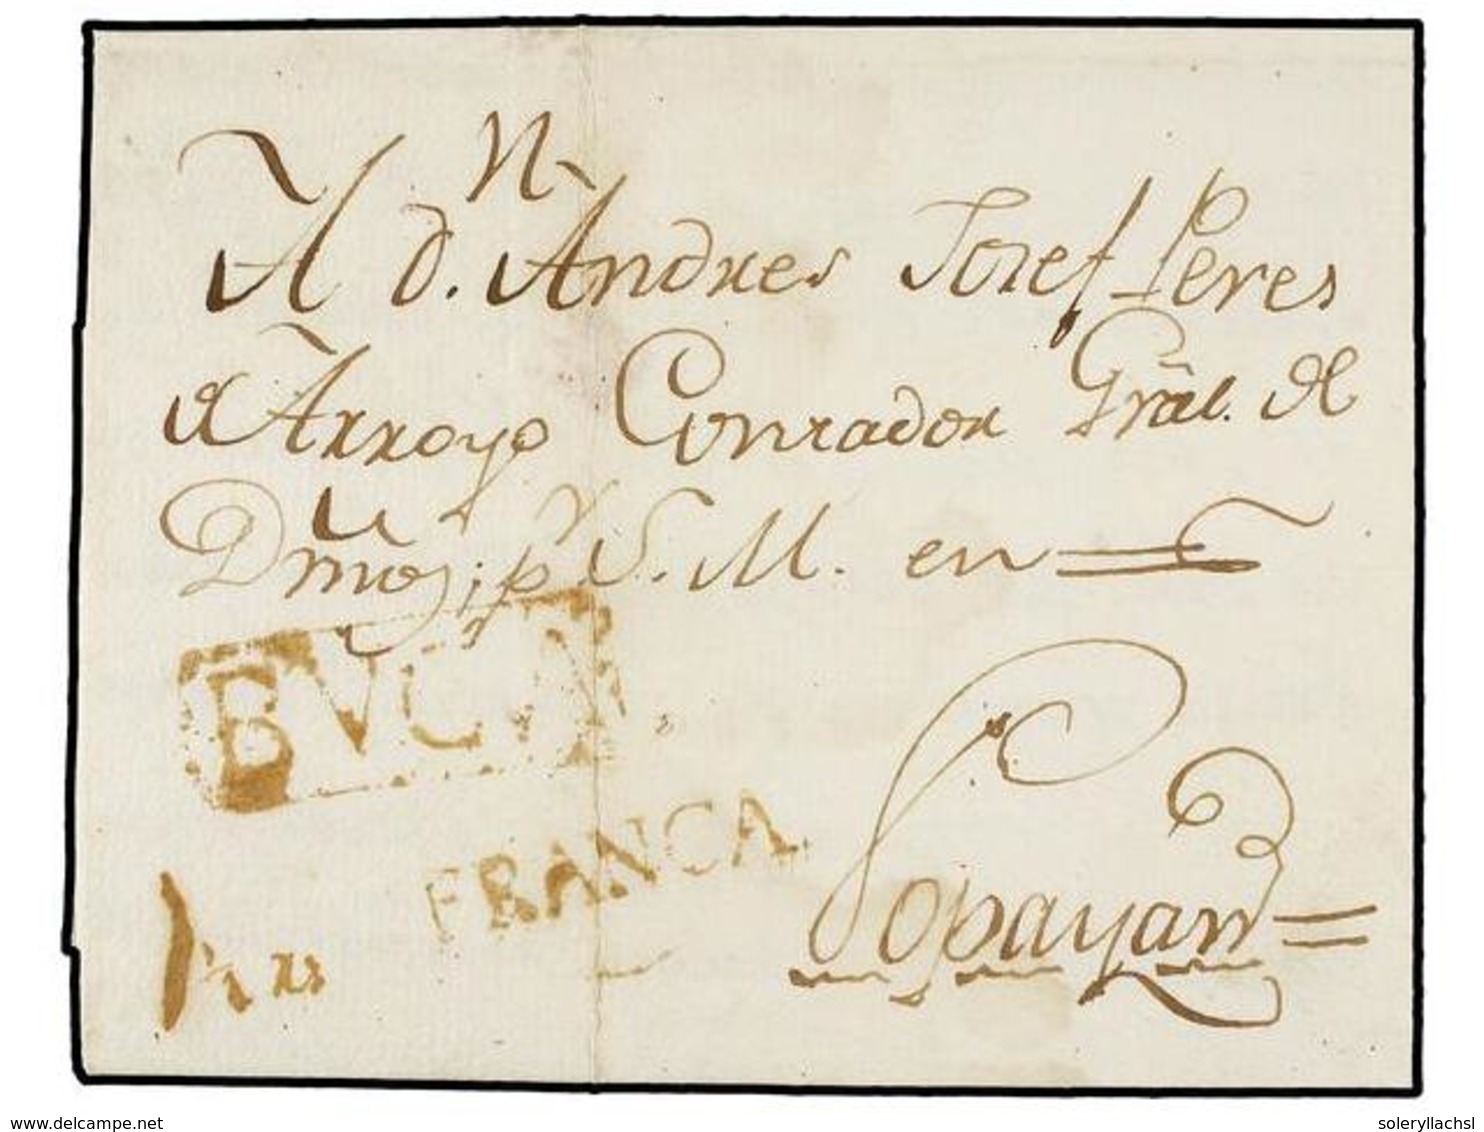 A d.n Andres Josef Peres
d Arroyo Contador Grãl. de
Dmos; pr S. M. en
BVGA
FRANCA
Popayan =
delcampe.net
soleryllachsl